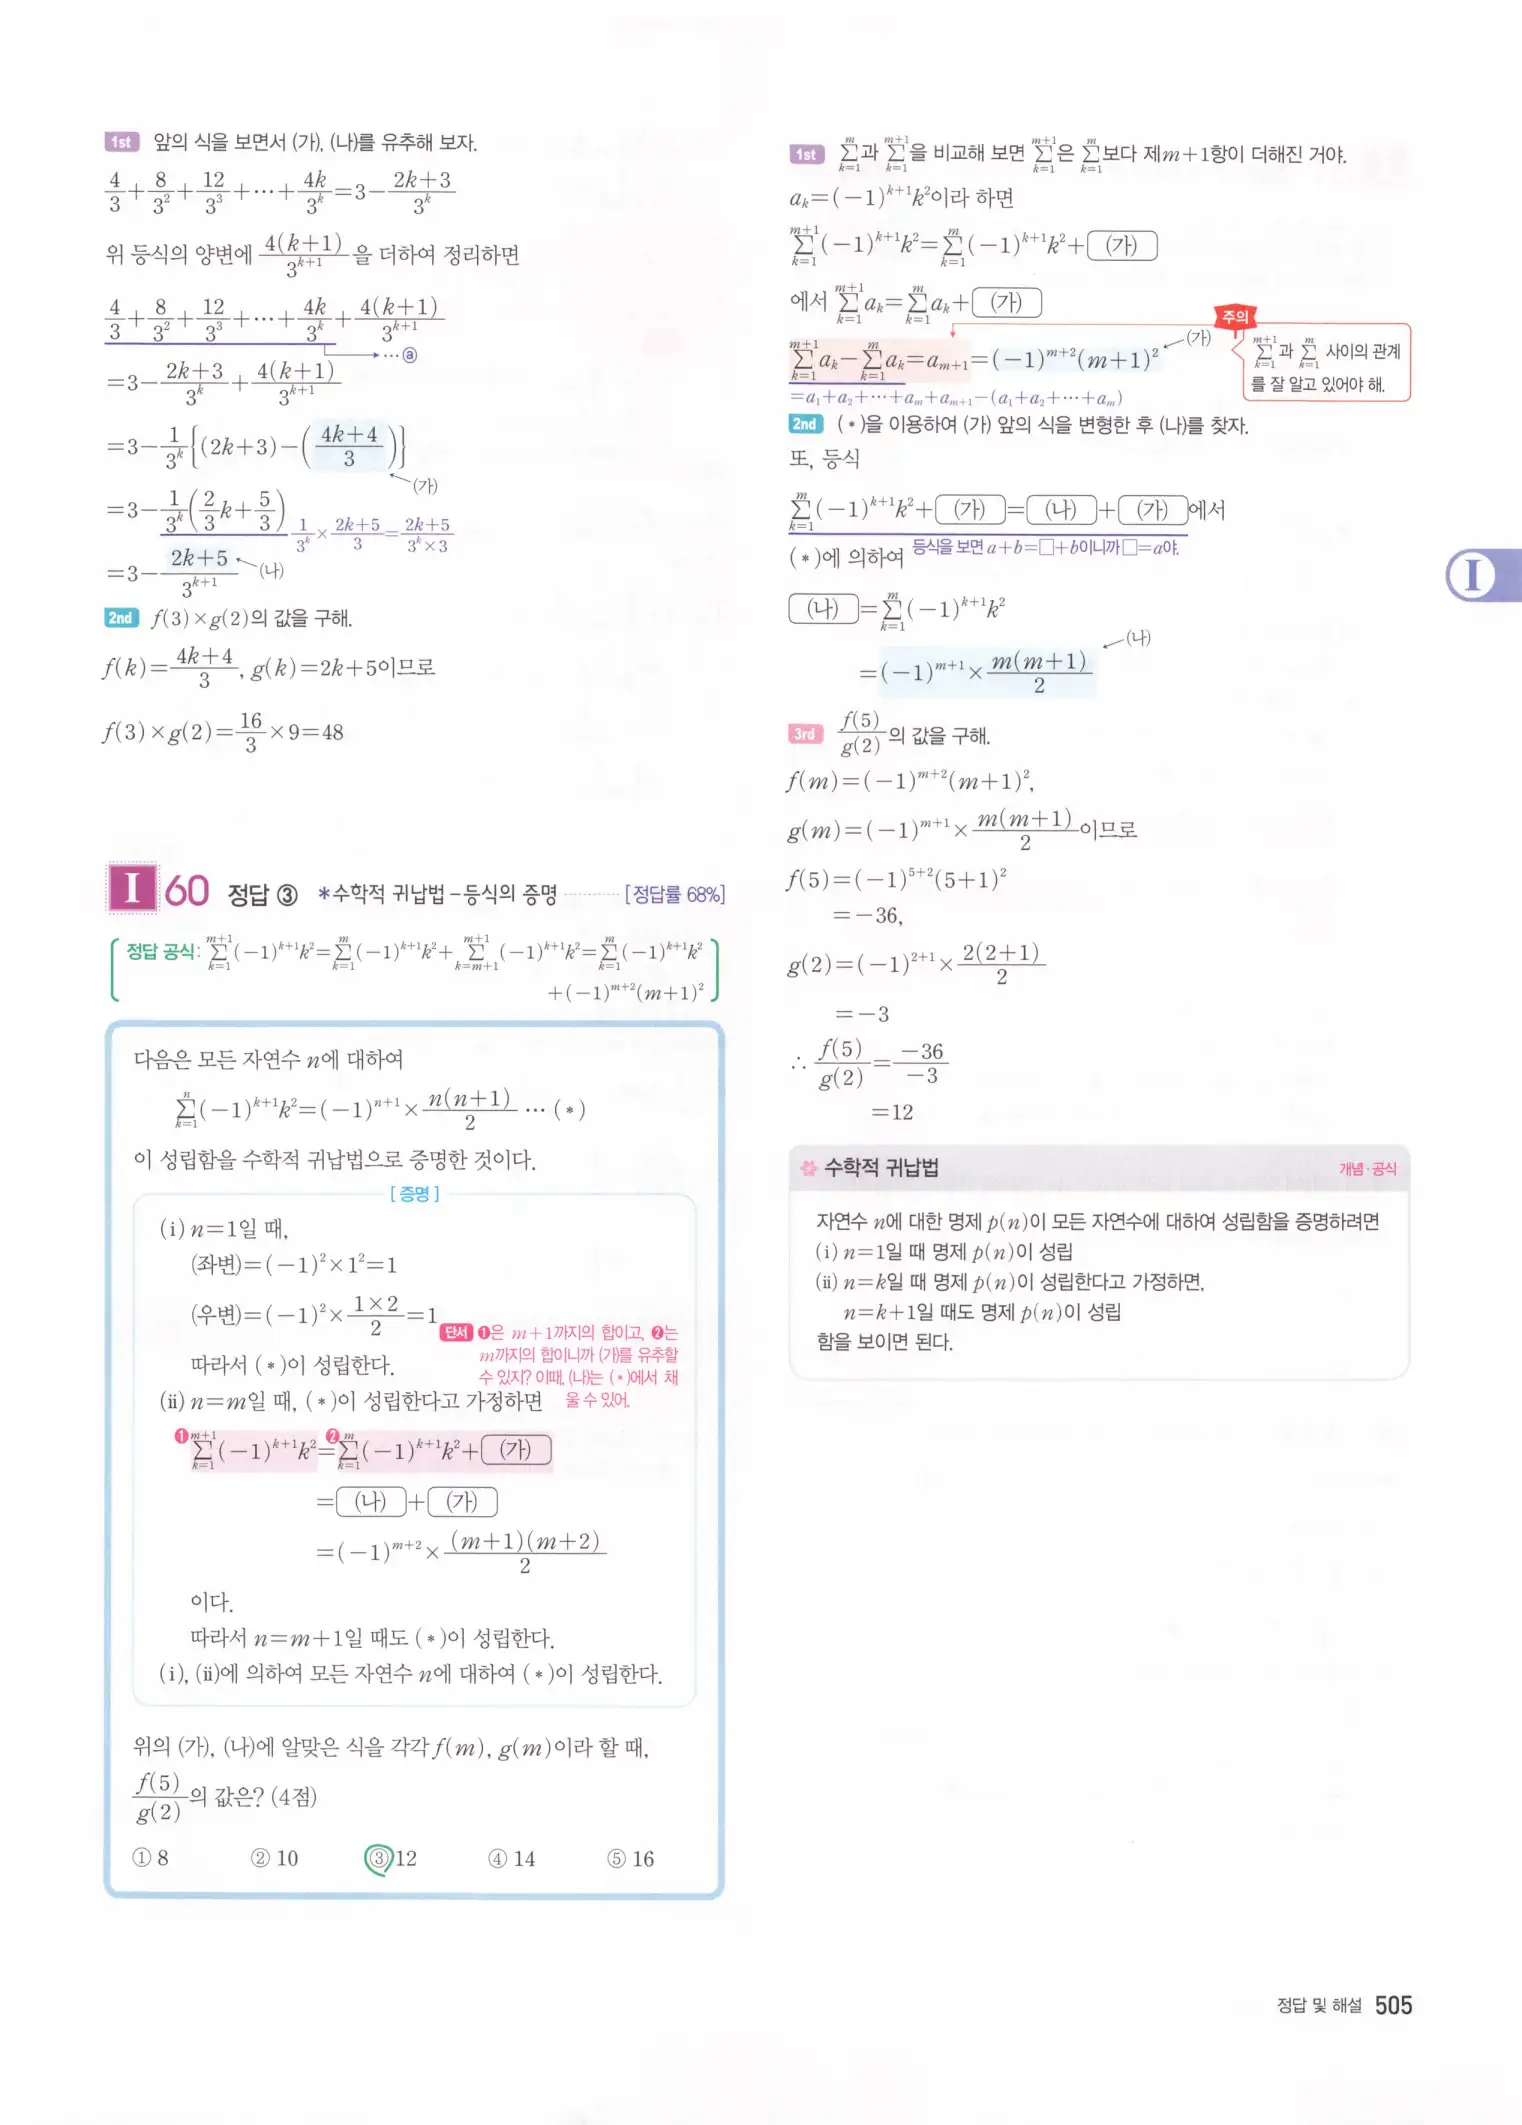 1st 앞의 식을 보면서 (가), (나)를 유추해 보자.
4/3+8/3²+12/3³+⋯+4k/3^k=3-(2k+3)/3^k
위 등식의 양변에 4(k+1)/3^(k+1)을 더하여 정리하면
4/3+8/3²+12/3³+⋯+4k/3^k+4(k+1)/3^(k+1)
⋯ⓐ
=3-(2k+3)/3^k+4(k+1)/3^(k+1)
=3-1/3^k{(2k+3)-((4k+4)/3)}
(가)
=3-1/3^k(2/3 k+5/3) 1/3^k×(2k+5)/3=(2k+5)/(3^k×3)
=3-(2k+5)/3^(k+1) (나)
2nd f(3)×g(2)의 값을 구해.
f(k)=(4k+4)/3, g(k)=2k+5이므로
f(3)×g(2)=16/3×9=48
I 60 정답 ③ *수학적 귀납법-등식의 증명 ⋯⋯ [정답률 68%]
정답 공식: ∑_{k=1}^{m+1}(-1)^(k+1)k²=∑_{k=1}^{m}(-1)^(k+1)k²+∑_{k=m+1}^{m+1}(-1)^(k+1)k²=∑_{k=1}^{m}(-1)^(k+1)k²
+(-1)^(m+2)(m+1)²
다음은 모든 자연수 n에 대하여
∑_{k=1}^{n}(-1)^(k+1)k²=(-1)^(n+1)×n(n+1)/2 ⋯ (*)
이 성립함을 수학적 귀납법으로 증명한 것이다.
[증명]
(i) n=1일 때,
(좌변)=(-1)²×1²=1
(우변)=(-1)²×(1×2)/2=1
단서 ❶은 m+1까지의 합이고, ❷는
m까지의 합이니까 (가)를 유추할
수 있지? 이때, (나)는 (*)에서 채
울 수 있어.
따라서 (*)이 성립한다.
(ii) n=m일 때, (*)이 성립한다고 가정하면
❶∑_{k=1}^{m+1}(-1)^(k+1)k²=❷∑_{k=1}^{m}(-1)^(k+1)k²+(가)
=(나)+(가)
=(-1)^(m+2)×(m+1)(m+2)/2
이다.
따라서 n=m+1일 때도 (*)이 성립한다.
(i), (ii)에 의하여 모든 자연수 n에 대하여 (*)이 성립한다.
위의 (가), (나)에 알맞은 식을 각각 f(m), g(m)이라 할 때,
f(5)/g(2)의 값은? (4점)
① 8 ② 10 ③ 12 ④ 14 ⑤ 16
1st ∑_{k=1}^{m}과 ∑_{k=1}^{m+1}을 비교해 보면 ∑_{k=1}^{m+1}은 ∑_{k=1}^{m}보다 제m+1항이 더해진 거야.
a_k=(-1)^(k+1)k²이라 하면
∑_{k=1}^{m+1}(-1)^(k+1)k²=∑_{k=1}^{m}(-1)^(k+1)k²+(가)
에서 ∑_{k=1}^{m+1}a_k=∑_{k=1}^{m}a_k+(가)
∑_{k=1}^{m+1}a_k-∑_{k=1}^{m}a_k=a_{m+1}=(-1)^(m+2)(m+1)² (가)
=a₁+a₂+⋯+a_m+a_{m+1}-(a₁+a₂+⋯+a_m)
주의
∑_{k=1}^{m+1}과 ∑_{k=1}^{m} 사이의 관계
를 잘 알고 있어야 해.
2nd (*)을 이용하여 (가) 앞의 식을 변형한 후 (나)를 찾자.
또, 등식
∑_{k=1}^{m}(-1)^(k+1)k²+(가)=(나)+(가)에서
등식을 보면 a+b=□+b이니까 □=a야.
(*)에 의하여
(나)=∑_{k=1}^{m}(-1)^(k+1)k²
=(-1)^(m+1)×m(m+1)/2 (나)
3rd f(5)/g(2)의 값을 구해.
f(m)=(-1)^(m+2)(m+1)²,
g(m)=(-1)^(m+1)×m(m+1)/2이므로
f(5)=(-1)^(5+2)(5+1)²
=-36,
g(2)=(-1)^(2+1)×2(2+1)/2
=-3
∴ f(5)/g(2)=-36/-3
=12
수학적 귀납법 개념·공식
자연수 n에 대한 명제 p(n)이 모든 자연수에 대하여 성립함을 증명하려면
(i) n=1일 때 명제 p(n)이 성립
(ii) n=k일 때 명제 p(n)이 성립한다고 가정하면,
n=k+1일 때도 명제 p(n)이 성립
함을 보이면 된다.
I
정답 및 해설 505